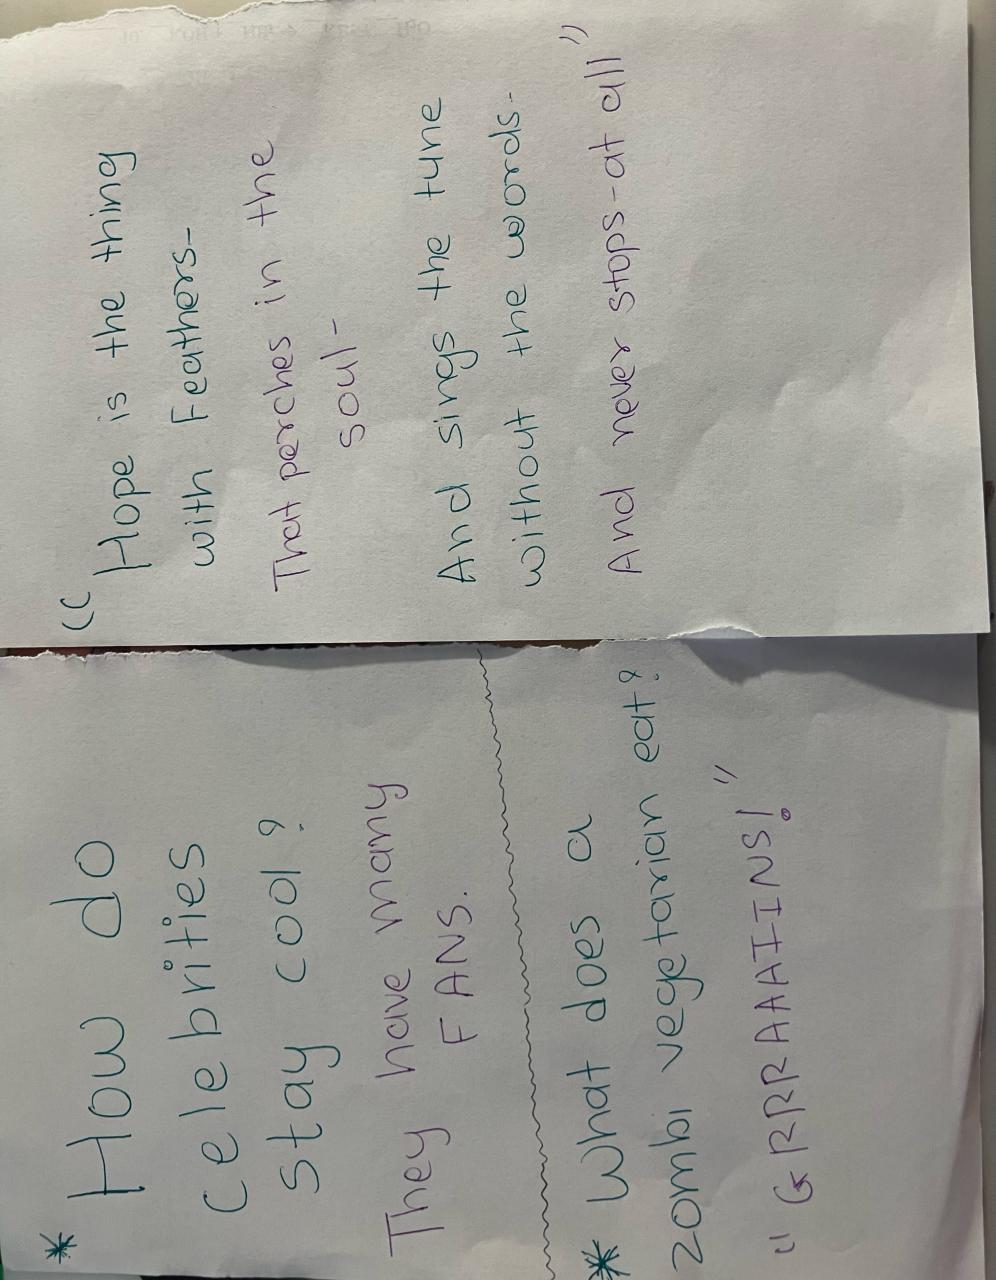 * How do
celebrities
stay cool?
They have many
FANS.
* What does a
zombi vegetarian eat?
"GRRRAAAIINS!"
"Hope is the thing
with Feathers-
That perches in the
soul-
And sings the tune
without the words-
And never stops-at all"